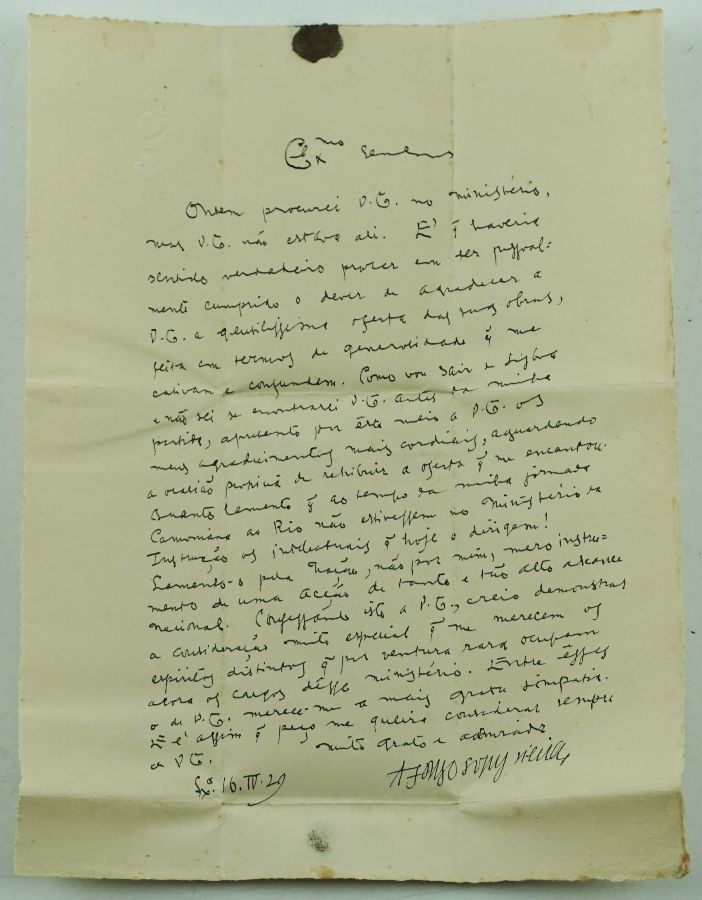 Exmo Senhor
Ontem procurei V.E. no ministério,
mas V.E. não estava ali. E é q̃ haveria
sentido verdadeiro prazer em ter pessoal-
mente cumprido o dever de agradecer a
V.E. a gentilíssima oferta das suas obras,
feita em termos de generosidade q̃ me
cativam e confundem. Como vou sair de Lisboa
e não sei se encontrarei V.E. antes da minha
partida, apresento por êste meio a V.E. os
meus agradecimentos mais cordiais, aguardando
a ocasião propícia de retribuir a oferta q̃ me encantou.
Quanto lamento q̃ ao tempo da minha jornada
Camoniana ao Rio não estivessem no Ministério da
Instrução os intelectuais q̃ hoje o dirigem!
Lamento-o pela Nação, não por mim, mero instru-
mento de uma Acção de tanto e tão alto alcance
nacional. Confessando isto a V.E., creio demonstrar
a consideração muito especial q̃ me merecem os
espíritos distintos q̃ por ventura rara ocupam
agora os cargos dêsse ministério. Entre êsses
o de V.E. merece-me a mais grata simpatia.
E é assim q̃ peço me queira considerar sempre
muito grato e admirador
de V.E.
Lxa. 16.IV.29
Afonso Lopes Vieira